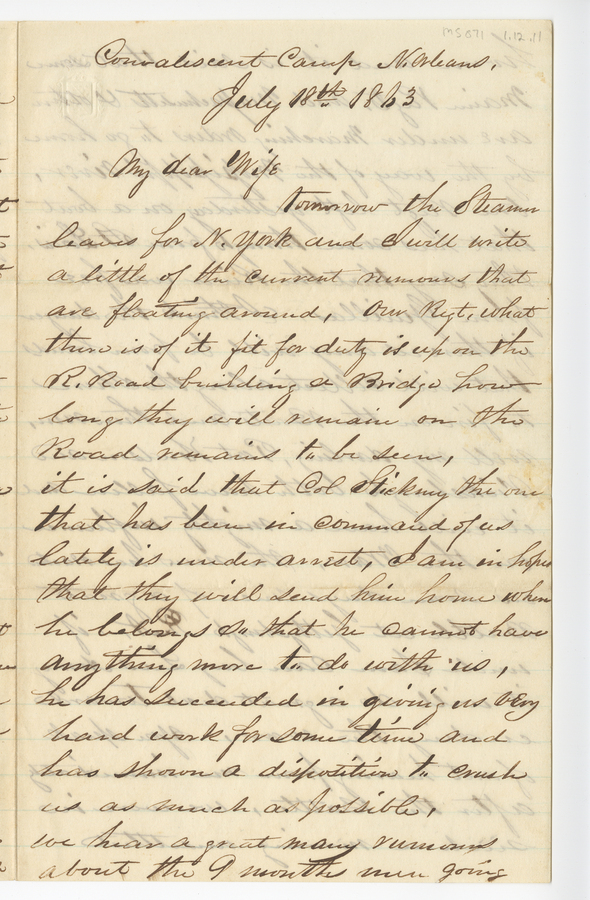 MS 071 1.12.11
Convalescent Camp N. Orleans,
July 18th 1863
My dear Wife
tomorrow the Steamer
leaves for N. York and I will write
a little of the current rumours that
are floating around, Our Regt, what
there is of it fit for duty is up on the
R. Road building a Bridge how
long they will remain on the
Road remains to be seen,
it is said that Col Stickney the one
that has been in command of us
lately is under arrest, I am in hopes
that they will send him home where
he belongs so that he cannot have
anything more to do with us,
he has succeeded in giving us very
hard work for some time and
has shown a disposition to crush
us as much as possible,
we hear a great many rumours
about the 9 months men going